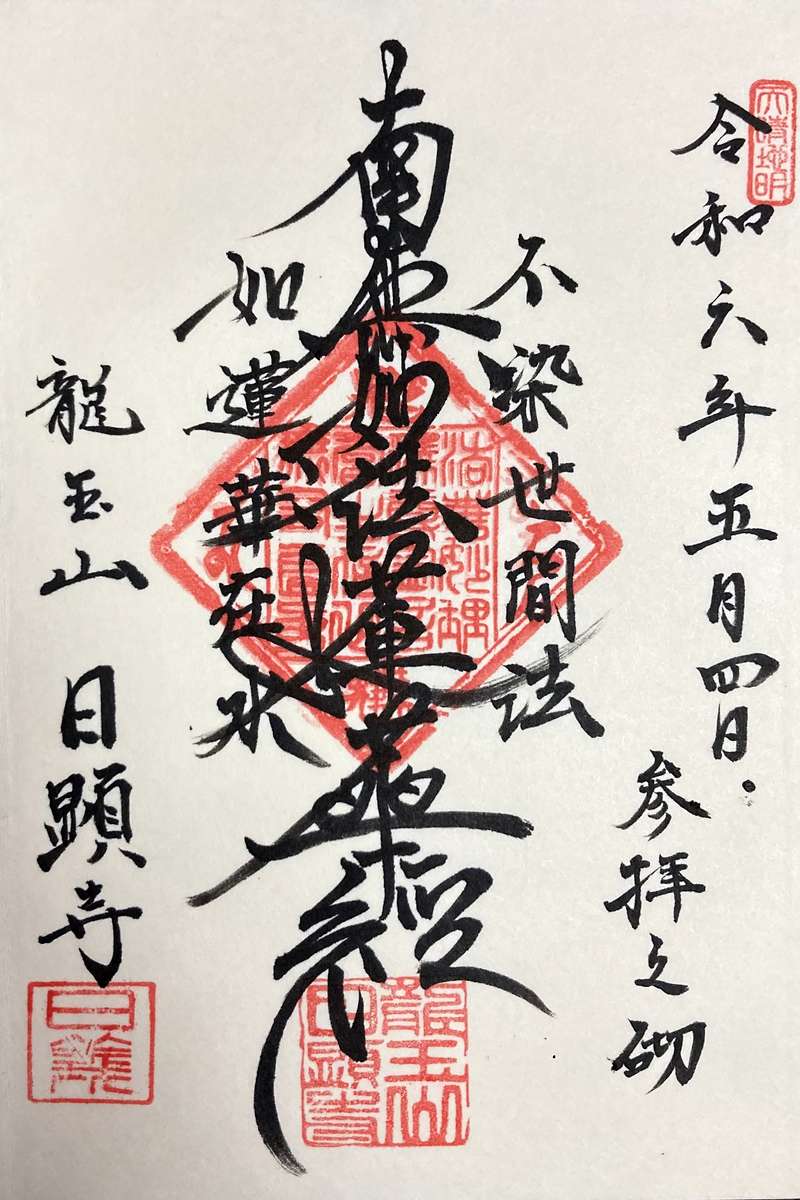 天清地明
令和六年五月四日.
参拝之砌
不染世間法
南無妙法蓮華経
如蓮華在水
龍玉山 日顕寺
龍玉山
日顕寺